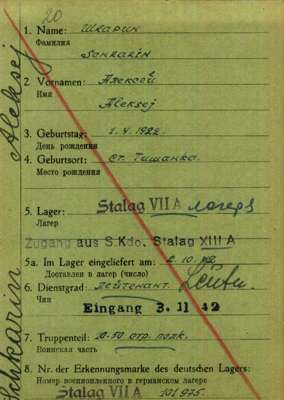 20
1. Name: Шкарин
Фамилия
Schkarin
2. Vornamen: Алексей
Имя
Aleksej
3. Geburtstag: 1. 4. 1922.
День рождения
4. Geburtsort: ст. Тишанка.
Место рождения
5. Lager: Stalag VII A лагерь
Лагерь
Zugang aus S.Kdo. Stalag XIII A
5a. Im Lager eingeliefert am: 2. 10. 42
Доставлен в лагерь (число)
6. Dienstgrad: лейтенант. Leutn.
Чин
Eingang 3. 11 42
7. Truppenteil: полк.
Воинская часть
8. Nr. der Erkennungsmarke des deutschen Lagers:
Номер военнопленного в германском лагере
Stalag VII A 101975.
Schkarin Aleksej